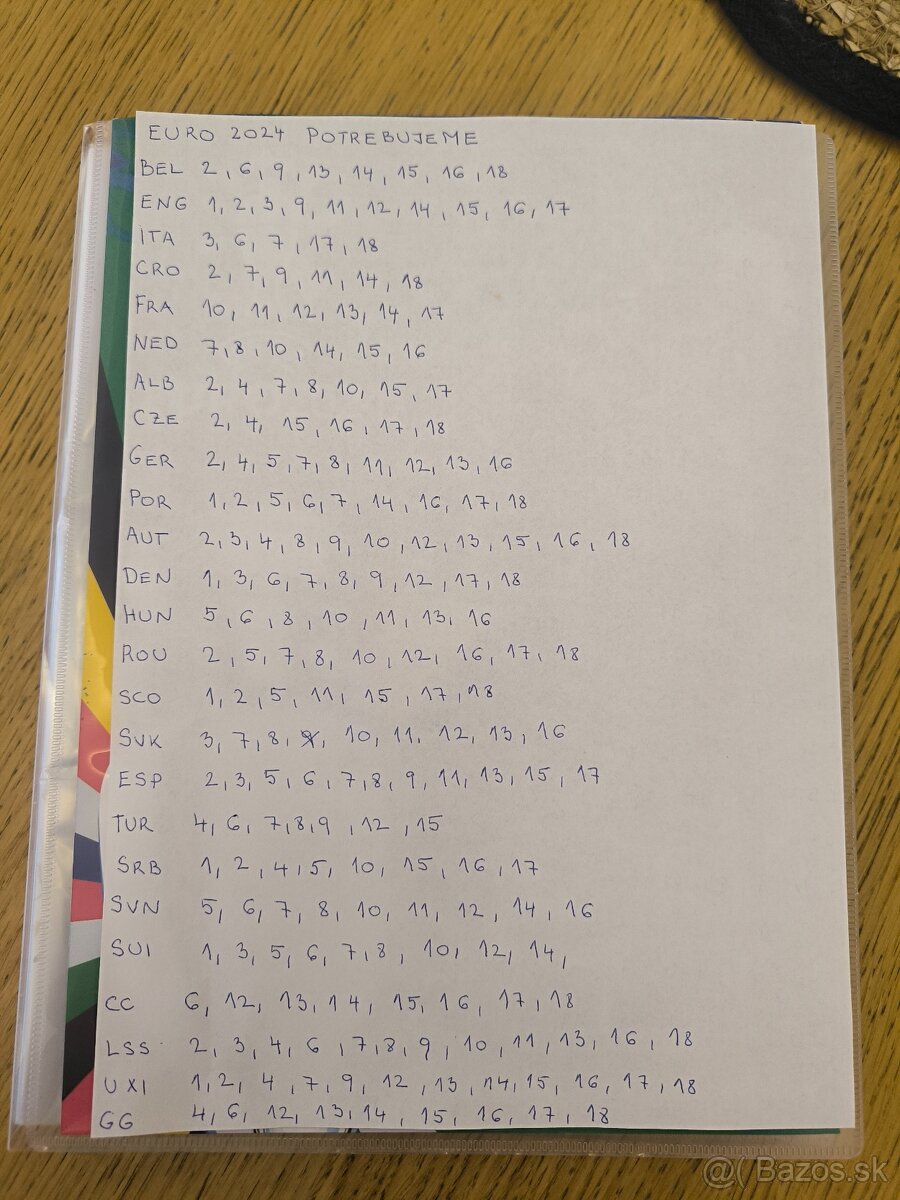 EURO 2024 POTREBUJEME
BEL 2, 6, 9, 13, 14, 15, 16, 18
ENG 1, 2, 3, 9, 11, 12, 14, 15, 16, 17
ITA 3, 6, 7, 17, 18
CRO 2, 7, 9, 11, 14, 18
FRA 10, 11, 12, 13, 14, 17
NED 7, 8, 10, 14, 15, 16
ALB 2, 4, 7, 8, 10, 15, 17
CZE 2, 4, 15, 16, 17, 18
GER 2, 4, 5, 7, 8, 11, 12, 13, 16
POR 1, 2, 5, 6, 7, 14, 16, 17, 18
AUT 2, 3, 4, 8, 9, 10, 12, 13, 15, 16, 18
DEN 1, 3, 6, 7, 8, 9, 12, 17, 18
HUN 5, 6, 8, 10, 11, 13, 16
ROU 2, 5, 7, 8, 10, 12, 16, 17, 18
SCO 1, 2, 5, 11, 15, 17, 18
SVK 3, 7, 8, 9, 10, 11, 12, 13, 16
ESP 2, 3, 5, 6, 7, 8, 9, 11, 13, 15, 17
TUR 4, 6, 7, 8, 9, 12, 15
SRB 1, 2, 4, 5, 10, 15, 16, 17
SVN 5, 6, 7, 8, 10, 11, 12, 14, 16
SUI 1, 3, 5, 6, 7, 8, 10, 12, 14,
CC 6, 12, 13, 14, 15, 16, 17, 18
LSS 2, 3, 4, 6, 7, 8, 9, 10, 11, 13, 16, 18
UXI 1, 2, 4, 7, 9, 12, 13, 14, 15, 16, 17, 18
GG 4, 6, 12, 13, 14, 15, 16, 17, 18
@( Bazos.sk